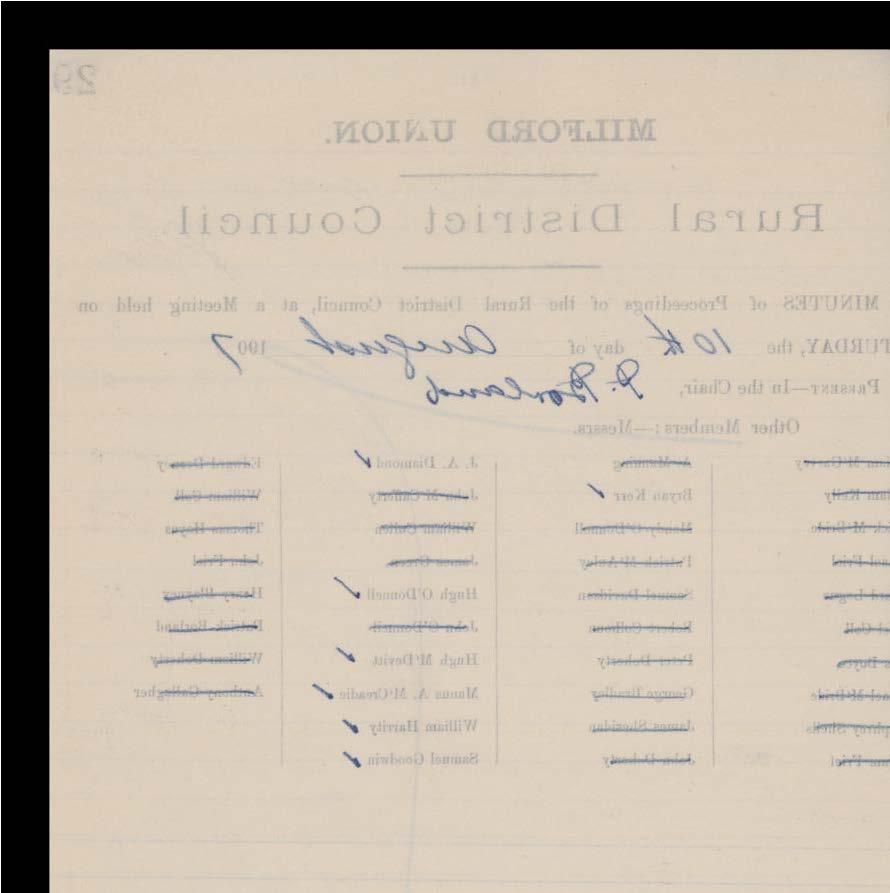 29
MILFORD UNION.
Rural District Council
MINUTES of Proceedings of the Rural District Council, at a Meeting held on
TURDAY, the 10th day of August 1907
PRESENT—In the Chair, P. Borland
Other Members:—Messrs.
M'Garvey A. Manning J. A. Diamond ✓ Edward
Kelly Bryan Kerr ✓ John M'Cafferty William Coll
M'Bride Mandy O'Donnell William Cullen Thomas Hayes
Friel Patrick M'Auley James Green John Friel
Logue Samuel Davidson Hugh O'Donnell ✓ Henry Blayney
Coll Robert Colhoun John O'Donnell Patrick Borland
Boyce Peter Doherty Hugh M'Devitt ✓ William Doherty
M'Bride George Bradley Manus A. M'Creadie ✓ Anthony Gallagher
Shells James Sheridan William Harrity ✓
Friel John Doherty Samuel Goodwin ✓